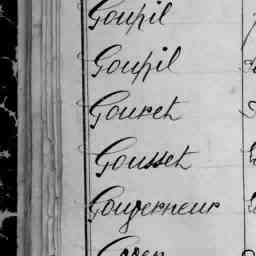 Goupil
Goupil
Gouret
Gousset
Gouverneur